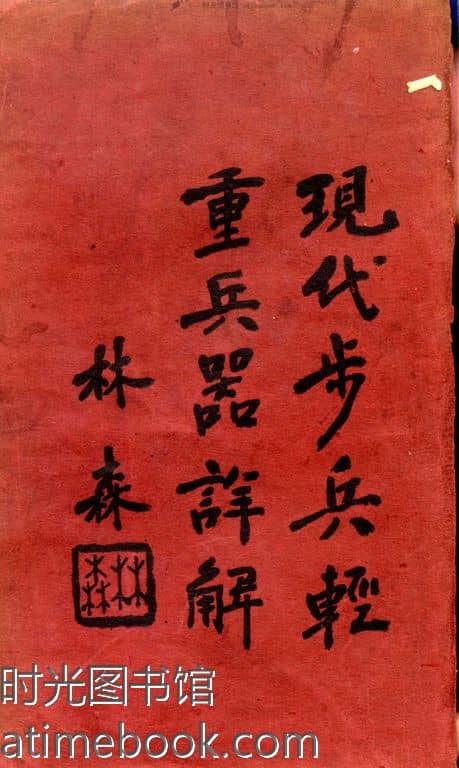 現代步兵輕
重兵器詳解
林森
林森
时光图书馆
atimebook.com